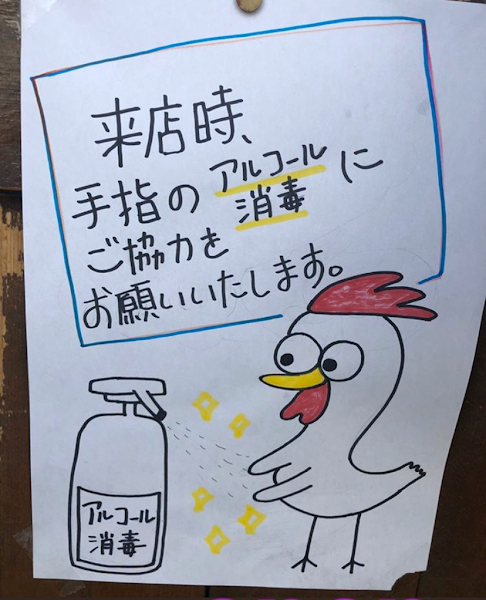 来店時、
手指のアルコール消毒に
ご協力を
お願いいたします。
アルコール
消毒